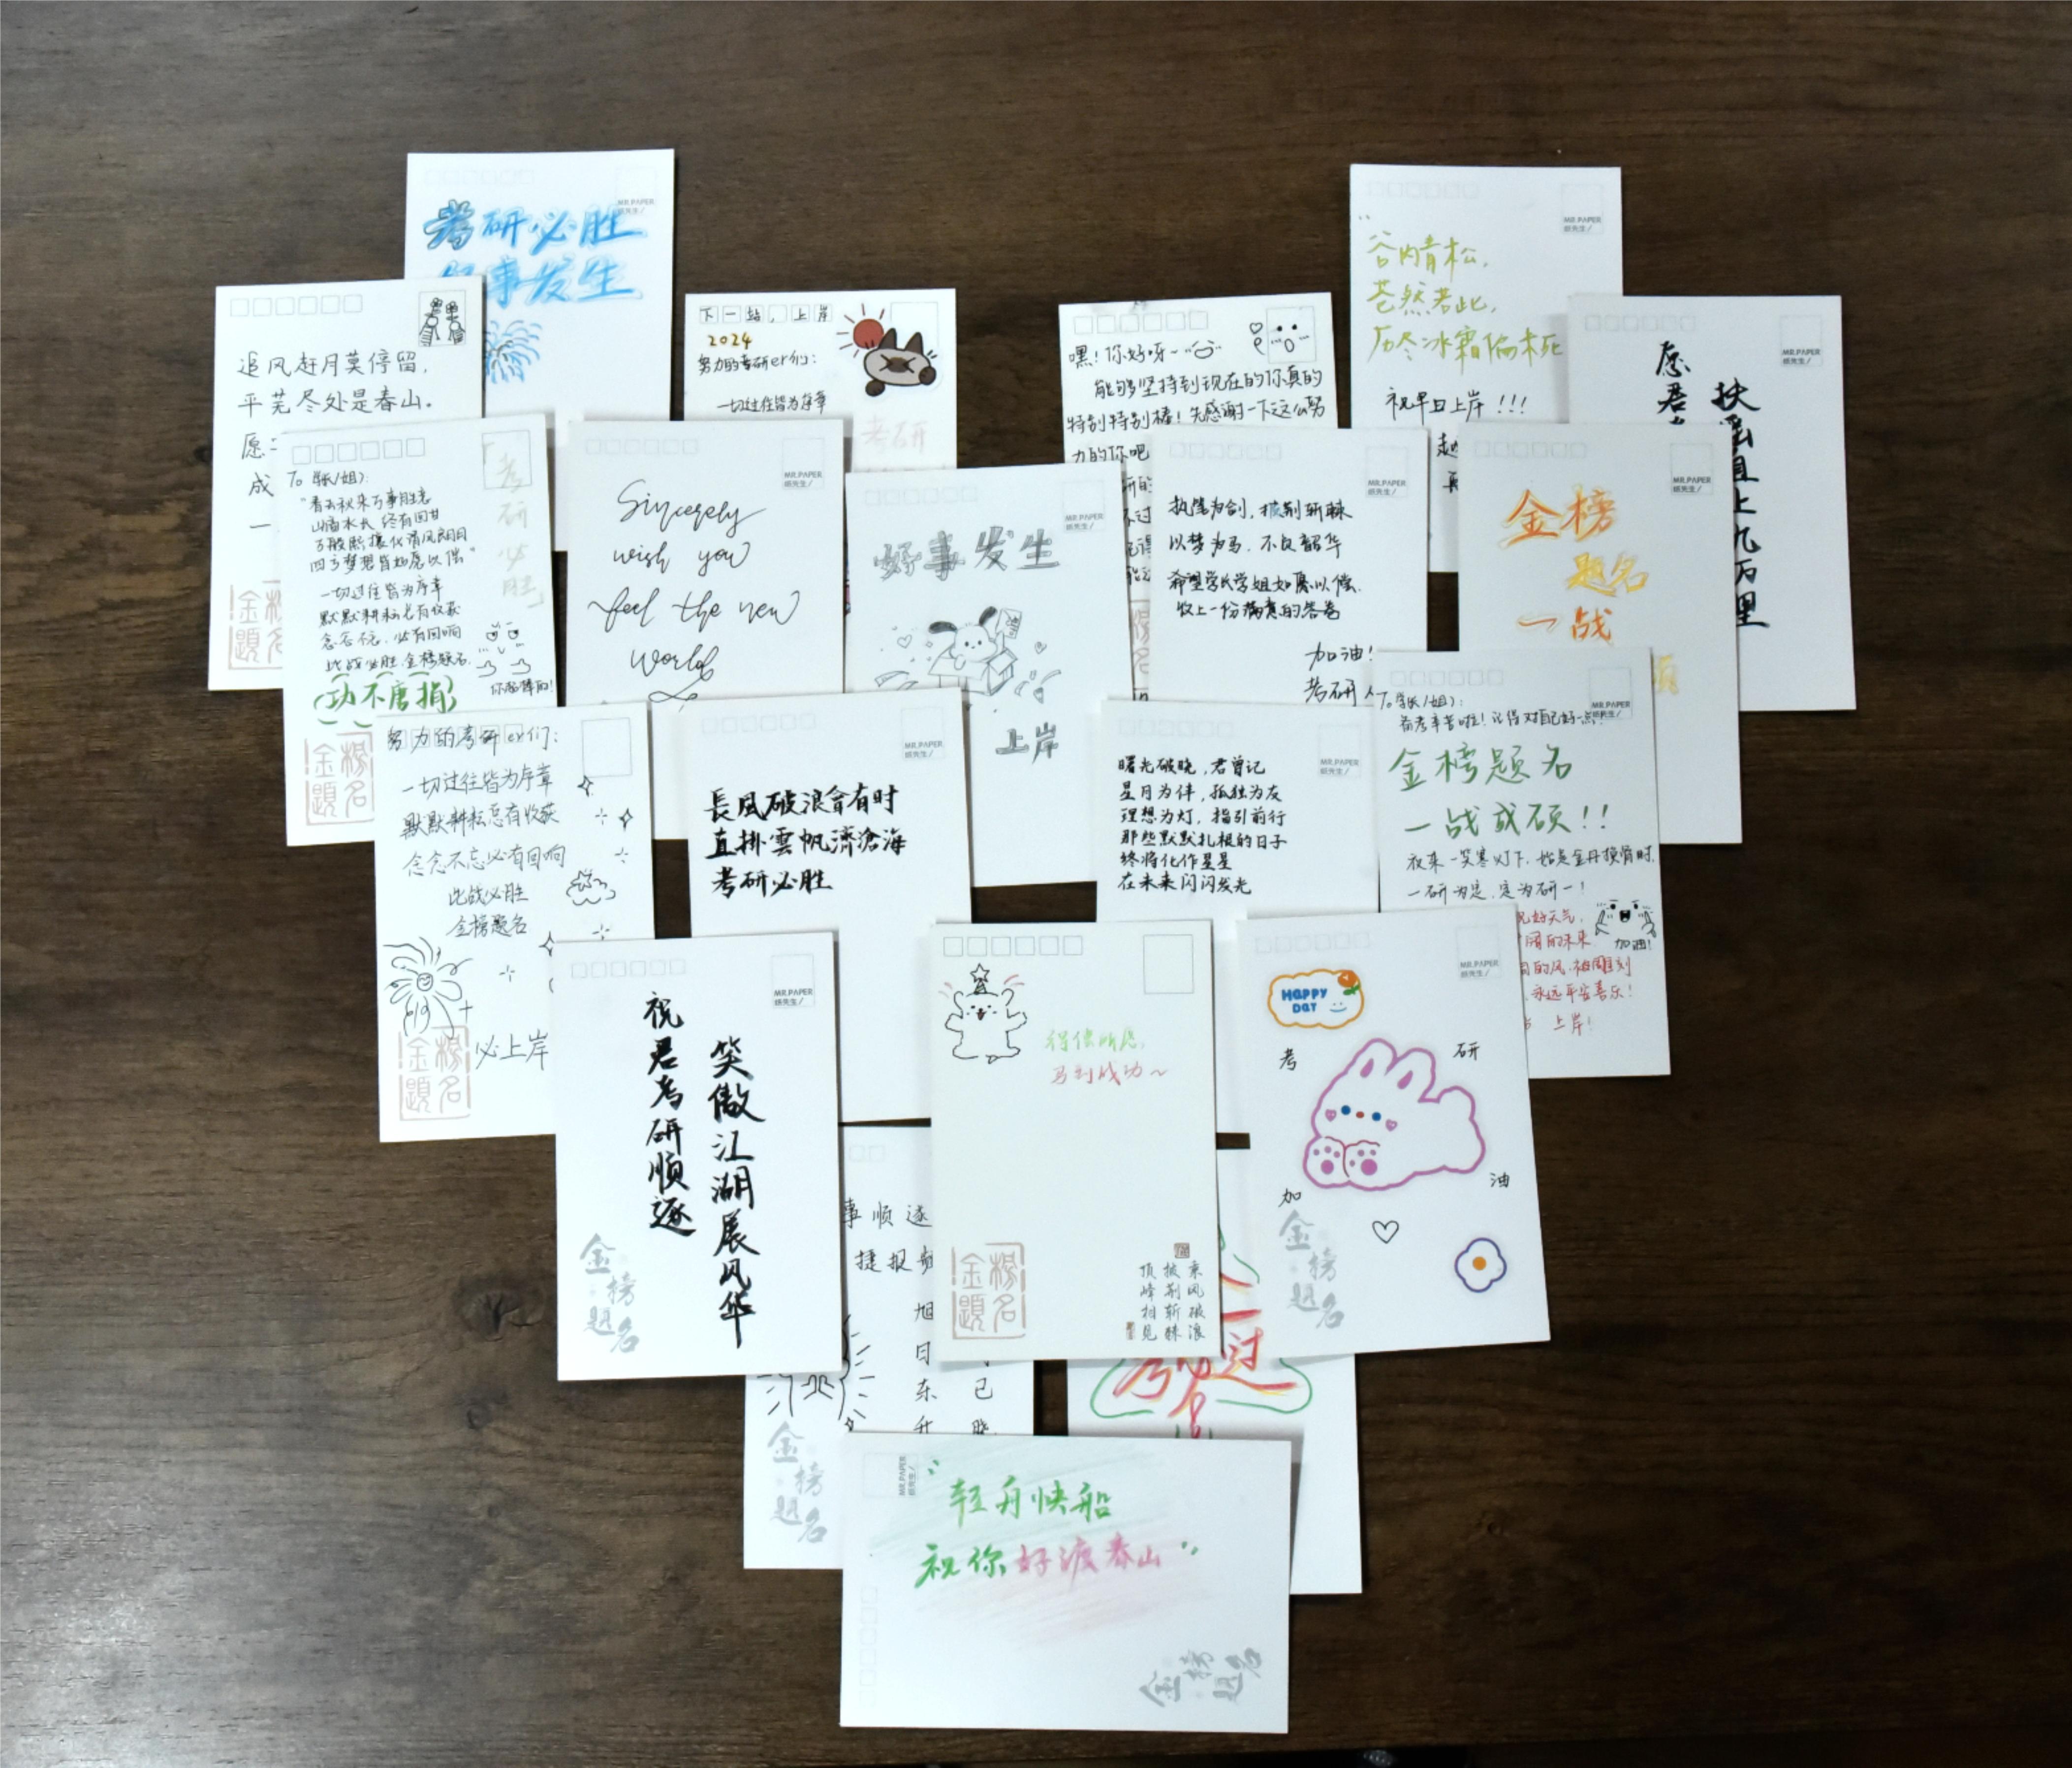 MR.PAPER
纸先生/
考研必胜
事发生
追风赶月莫停留,
平芜尽处是春山。
愿
成
一
金榜
題名
下一站,上岸
2024
努力的考研er们:
一切过往皆为序章
考研
嘿!你好呀~
能够坚持到现在的你真的
特别特别棒!先感谢一下这么努
力的你吧
MR.PAPER
纸先生/
谷内青松,
苍然若此,
历尽冰霜偏未死
祝早日上岸!!!
MR.PAPER
纸先生/
愿君
扶摇直上九万里
To 学长/姐):
"春去秋来万事胜意
山高水长 终有回甘
万般熙攘化清风朗月
四方梦想皆如愿以偿"
一切过往皆为序章
默默耕耘总有收获
念念不忘,必有回响
此战必胜,金榜题名.
(功不唐捐)
考研必胜
你最棒的!
金榜
題名
MR.PAPER
纸先生/
Sincerely
wish you
feel the new
World
MR.PAPER
纸先生/
好事发生
上岸
MR.PAPER
纸先生/
执笔为剑,披荆斩棘
以梦为马,不负韶华
希望学长学姐如愿以偿,
交上一份满意的答卷
加油!
考研人
MR.PAPER
纸先生/
金榜
题名
一战
努力的考研er们:
一切过往皆为序章
默默耕耘总有收获
念念不忘必有回响
此战必胜
金榜题名
必上岸
金榜
題名
MR.PAPER
纸先生/
長風破浪會有时
直掛雲帆濟滄海
考研必胜
MR.PAPER
纸先生/
曙光破晓,君曾记
星月为伴,孤独为友
理想为灯,指引前行
那些默默扎根的日子
终将化作星星
在未来闪闪发光
To 学长/姐):
MR.PAPER
纸先生/
备考辛苦啦!记得对自己好一点!
金榜题名
一战成硕!!
夜来一笑寒灯下,始是金丹换骨时.
一研为定,定为研一!
好天气,
的未来
的风,被雕刻
,永远平安喜乐!
上岸!
加油!
MR.PAPER
纸先生/
祝君考研顺逐
笑傲江湖展风华
金榜题名
得偿所愿,
马到成功~
金榜
題名
乘风破浪
披荆斩棘
顶峰相见
MR.PAPER
纸先生/
HAPPY
DAY
考研
加油
金榜题名
事顺遂
捷报
旭日东升
已
金榜题名
过
MR.PAPER
纸先生/
"轻舟快船
祝你好渡春山"
金榜题名